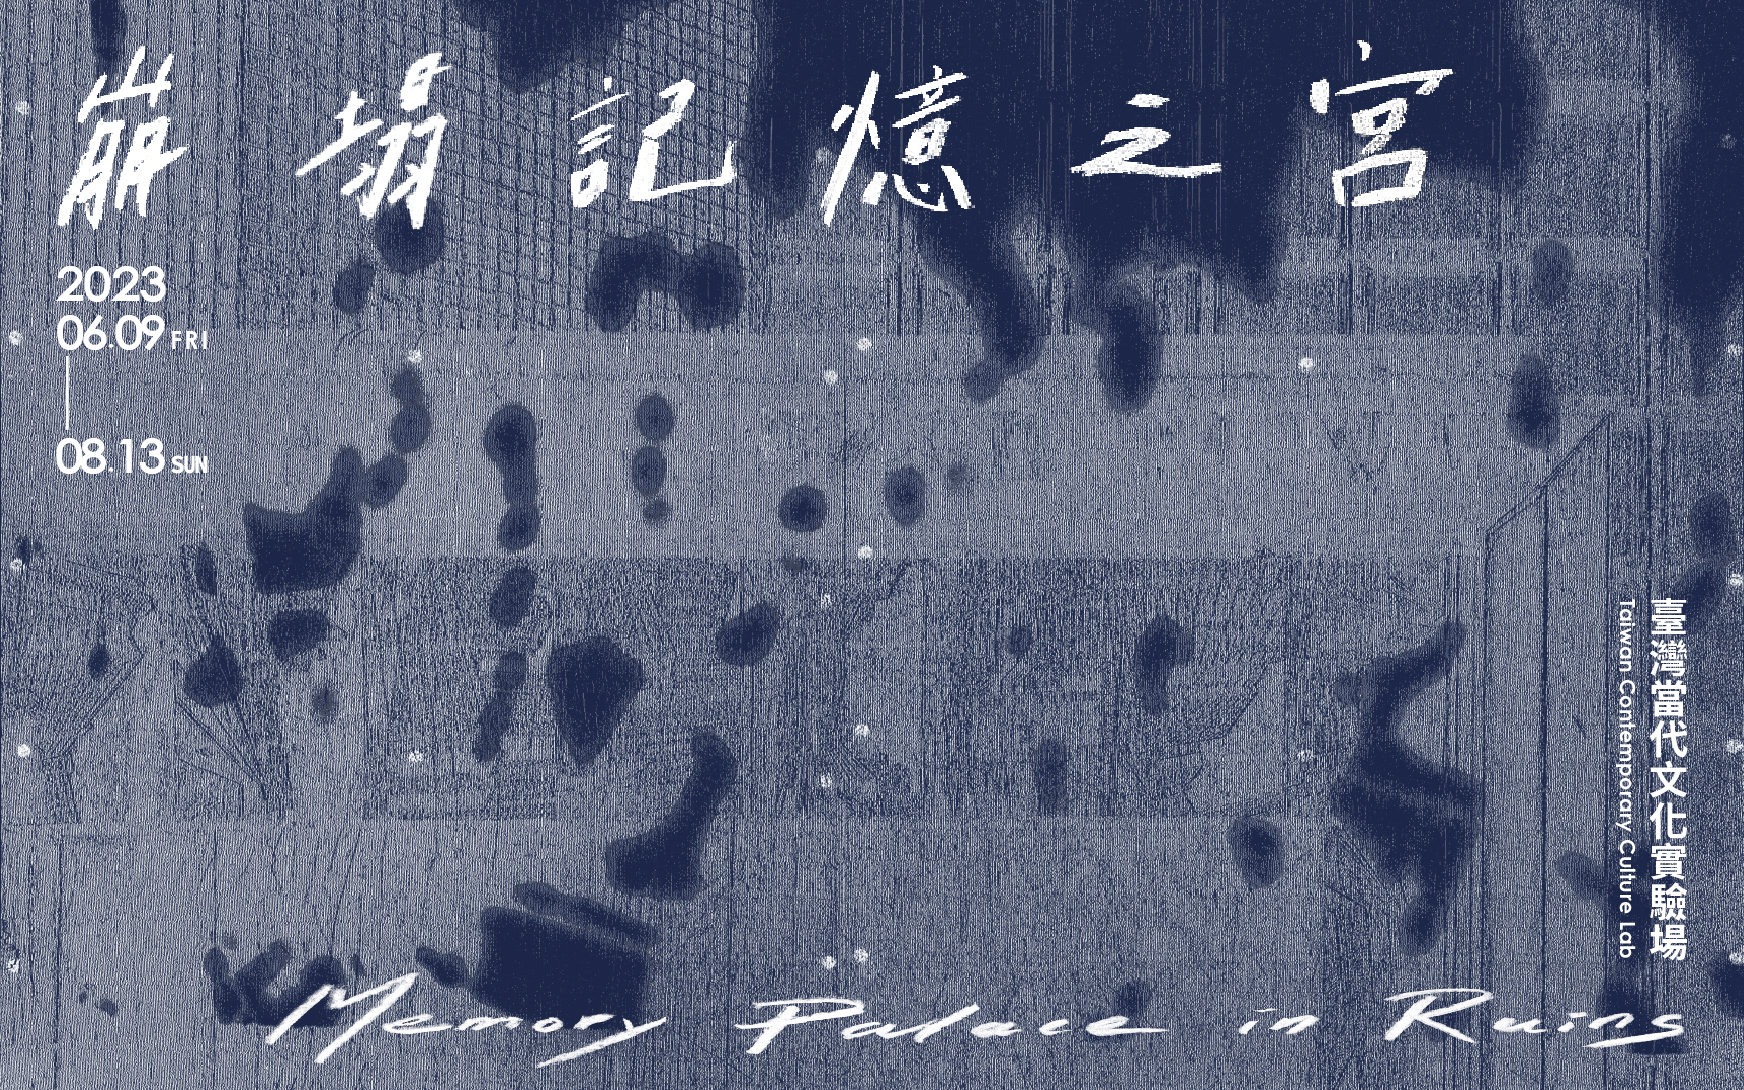 崩塌記憶之宮
2023
06.09 FRI
08.13 SUN
臺灣當代文化實驗場
Taiwan Contemporary Culture Lab
Memory Palace in Ruins